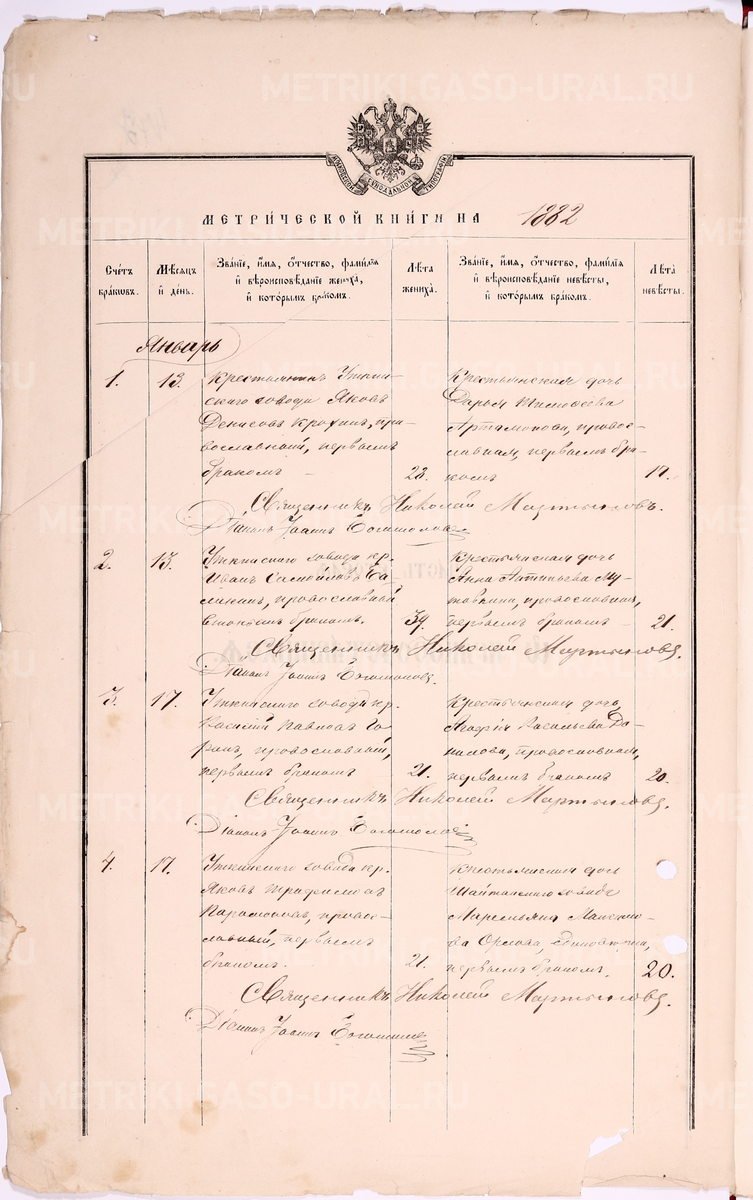 METRIKI.GASO-URAL.RU
МЕТРИЧЕСКОЙ КНИГИ НА 1882
Счетъ браковъ.
Мѣсяцъ и день.
Званіе, имя, отчество, фамилія и вѣроисповѣданіе жениха, и которымъ бракомъ.
Лѣта жениха.
Званіе, имя, отчество, фамилія и вѣроисповѣданіе невѣсты, и которымъ бракомъ.
Лѣта невѣсты.
Январь
1. 13. Крестьянинъ Уткин-
скаго завода Яковъ
Денисовъ, пра-
вославный, первымъ
бракомъ 23.
Крестьянская дочь
Дарья Тимофеева
Артамонова, правос-
лавная, первымъ бра-
комъ 19.
Священникъ Николай Мартыновъ.
Діаконъ Іоаннъ Богомоловъ
2. 13. Уткинскаго завода кр.
Иванъ Самойловъ
православный
вторымъ бракомъ. 39.
Крестьянская дочь
Анна Антипьева
православная,
первымъ бракомъ 21.
Священникъ Николай Мартыновъ.
Діаконъ Іоаннъ Богомоловъ.
3. 17. Уткинскаго завода кр.
Василій Павловъ
православный,
первымъ бракомъ 21.
Крестьянская дочь
Агафія Васильева Да-
нилова, православная,
первымъ бракомъ 20.
Священникъ Николай Мартыновъ.
Діаконъ Іоаннъ Богомоловъ
4. 17. Уткинскаго завода кр.
Яковъ Трофимовъ
Парамоновъ, право-
славный, первымъ
бракомъ. 21.
Крестьянская дочь
Шайтанскаго завода
Орлова,
первымъ бракомъ. 20.
Священникъ Николай Мартыновъ
Діаконъ Іоаннъ Богомоловъ